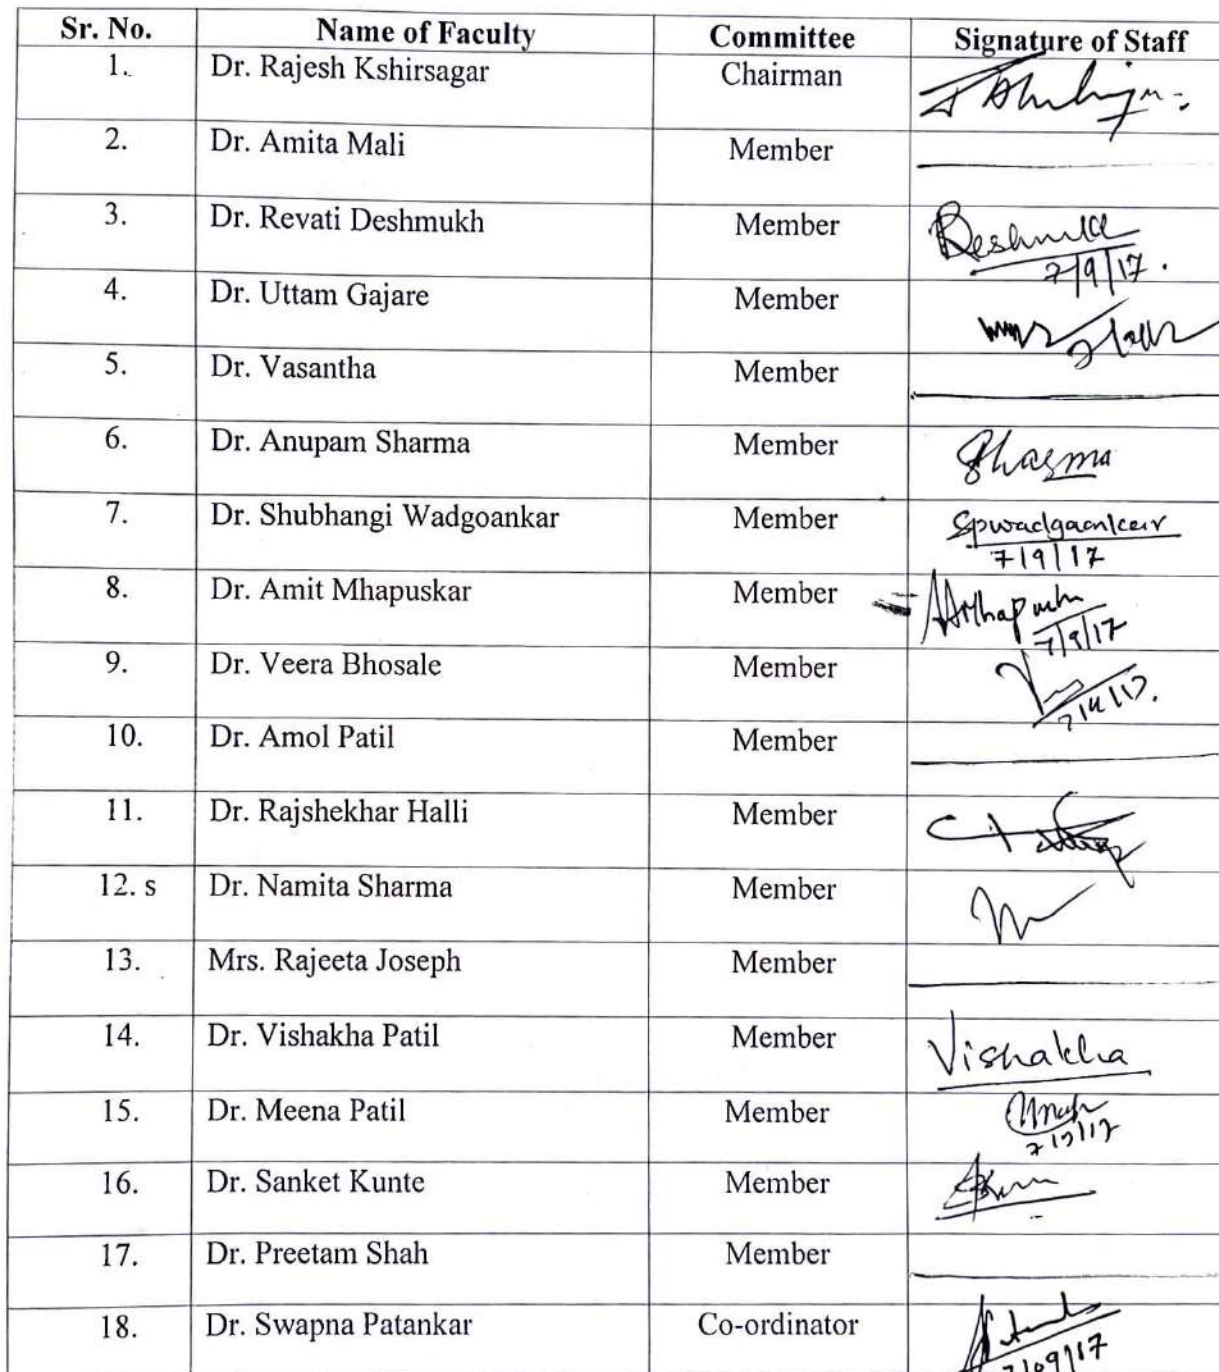 Sr. No. Name of Faculty Committee Signature of Staff
1. Dr. Rajesh Kshirsagar Chairman
2. Dr. Amita Mali Member
3. Dr. Revati Deshmukh Member
7/9/17.
4. Dr. Uttam Gajare Member
5. Dr. Vasantha Member
6. Dr. Anupam Sharma Member
7. Dr. Shubhangi Wadgoankar Member Spwadgaonkar
7/9/17
8. Dr. Amit Mhapuskar Member
7/9/17
9. Dr. Veera Bhosale Member
10. Dr. Amol Patil Member
11. Dr. Rajshekhar Halli Member
12. s Dr. Namita Sharma Member
13. Mrs. Rajeeta Joseph Member
14. Dr. Vishakha Patil Member Vishakha
15. Dr. Meena Patil Member
16. Dr. Sanket Kunte Member
17. Dr. Preetam Shah Member
18. Dr. Swapna Patankar Co-ordinator